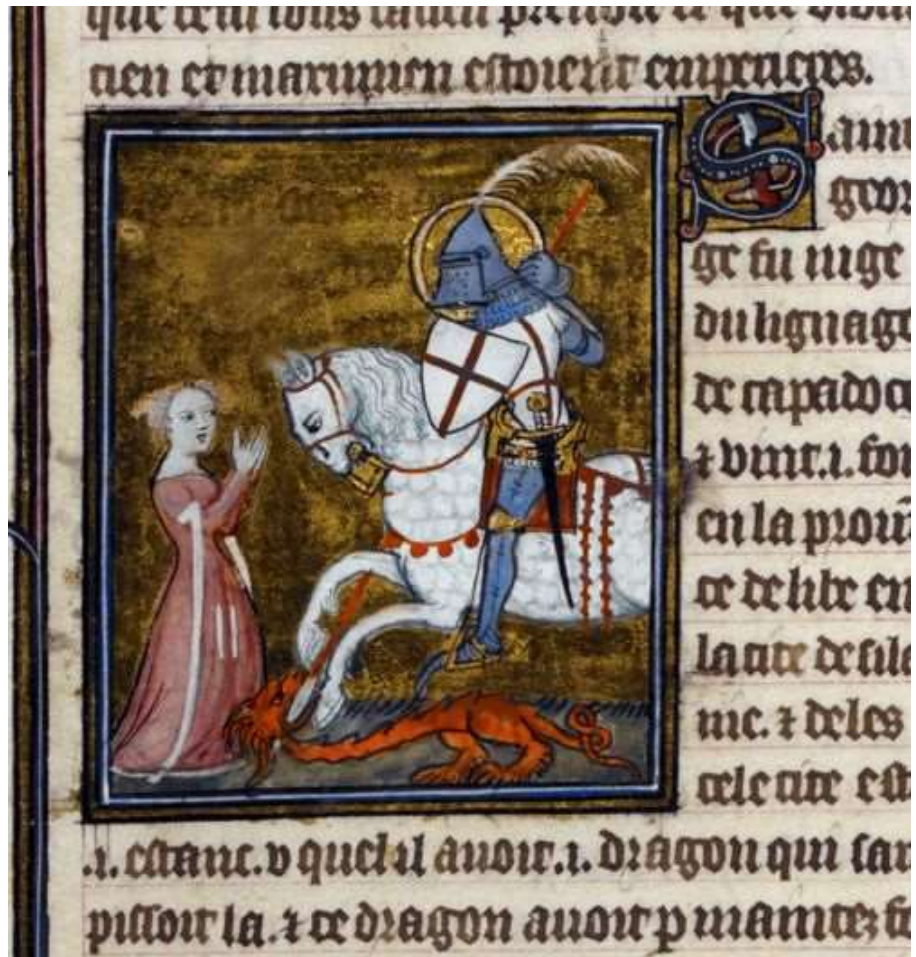 que cil tous
tien et maximien estoient empereres.
Saint
geor
ge fu iuge
du lignage
de capadoce
⁊ vint .i. foi
en la prouĩ
ce de libe en
la cite de sile
nie. ⁊ deles
cele cite est
.i. estanc. v quel il auoit .i. dragon qui
pissoit la. ⁊ ce dragon auoit p maintez fo